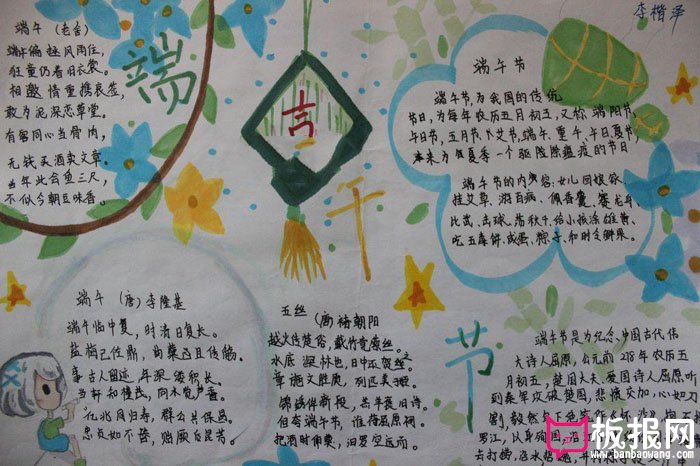 李楷泽
端午（老舍）
端午偏逢风雨狂，
村童仍着旧衣裳。
相邀情重携蓑笠，
敢为泥深恋草堂。
有客同心当骨肉，
无钱买酒卖文章。
当年此会鱼三尺，
不似今朝豆味香。
端
吉
午
节
端午节
端午节，为我国的传统
节日，为每年农历五月初五，又称端阳节，
午日节，五月节，艾节，端午，重午，午日，夏节，
本来为夏季一个驱除瘟疫的节日
端午节的内容：女儿回娘家，
挂艾草，游百病，佩香囊，赛龙舟，
比武，击球，荡秋千，给小孩涂雄黄，
吃五毒饼，咸蛋，粽子，和时令鲜果。
端午（唐）李隆基
端午临中夏，时清日复长。
盐梅已佐鼎，曲糵且传觞。
事古人留迹，年深缕积长。
当轩知槿茂，向水觉芦香。
亿兆同归寿，群公共保昌。
忠贞如不替，贻厥后昆芳。
五丝（唐）褚朝阳
越人传楚俗，截竹竞萦丝。
水底深休也，日中还贺之。
章施文胜质，列匹美于姬。
锦绣侔新段，羔羊寝旧诗。
但夸端午节，谁荐屈原祠。
把酒时伸奠，汨罗空远而。
端午节是为纪念中国古代伟
大诗人屈原，公元前278年农历五
月初五，楚国大夫、爱国诗人屈原听
到秦军攻破楚国，悲愤交加，心如刀
割，毅然
罗江，以身殉国
去打捞
板报网
www.banbaowang.com